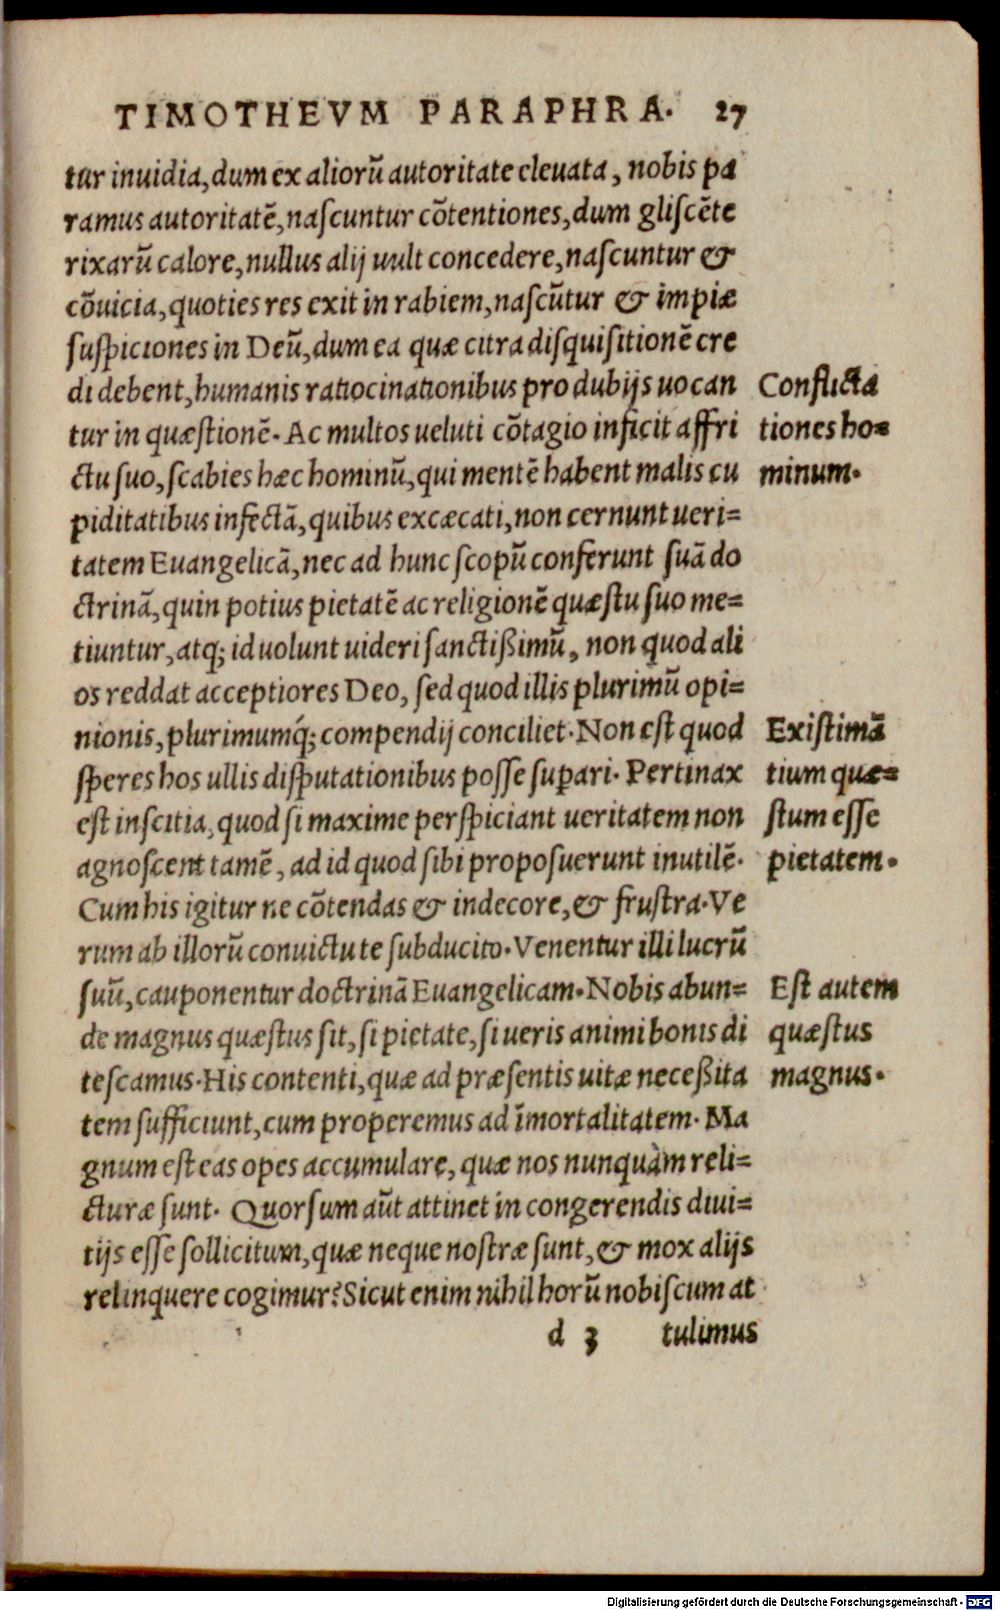 TIMOTHEVM PARAPHRA. 27
tur inuidia, dum ex aliorũ autoritate eleuata, nobis pa
ramus autoritatẽ, naſcuntur cõtentiones, dum gliſcẽte
rixarũ calore, nullus alij uult concedere, naſcuntur &
cõuicia, quoties res exit in rabiem, naſcũtur & impiæ
ſuſpiciones in Deũ, dum ea quæ citra diſquiſitionẽ cre
di debent, humanis ratiocinationibus pro dubijs uocan
tur in quæſtionẽ. Ac multos ueluti cõtagio inficit affri
ctu ſuo, ſcabies hæc hominũ, qui mentẽ habent malis cu
piditatibus infectã, quibus excæcati, non cernunt ueri=
tatem Euangelicã, nec ad hunc ſcopũ conferunt ſuã do
ctrinã, quin potius pietatẽ ac religionẽ quæſtu ſuo me=
tiuntur, atq; id uolunt uideri ſanctißimũ, non quod ali
os reddat acceptiores Deo, ſed quod illis plurimũ opi=
nionis, plurimumq́; compendij conciliet. Non eſt quod
ſperes hos ullis diſputationibus poſſe ſupari. Pertinax
eſt inſcitia, quod ſi maxime perſpiciant ueritatem non
agnoſcent tamẽ, ad id quod ſibi propoſuerunt inutilẽ.
Cum his igitur ne cõtendas & indecore, & fruſtra. Ve
rum ab illorũ conuictu te ſubducito. Venentur illi lucrũ
ſuũ, cauponentur doctrinã Euangelicam. Nobis abun=
de magnus quæſtus ſit, ſi pietate, ſi ueris animi bonis di
teſcamus. His contenti, quæ ad præſentis uitæ neceßita
tem ſufficiunt, cum properemus ad ĩmortalitatem. Ma
gnum eſt eas opes accumulare, quæ nos nunquàm reli=
cturæ ſunt. Quorſum aũt attinet in congerendis diui=
tijs eſſe ſollicitum, quæ neque noſtræ ſunt, & mox alijs
relinquere cogimur? Sicut enim nihil horũ nobiſcum at
d 3 tulimus
Conflicta
tiones ho=
minum.
Exiſtimã
tium quæ=
ſtum eſſe
pietatem.
Eſt autem
quæſtus
magnus.
Digitalisierung gefördert durch die Deutsche Forschungsgemeinschaft - DFG